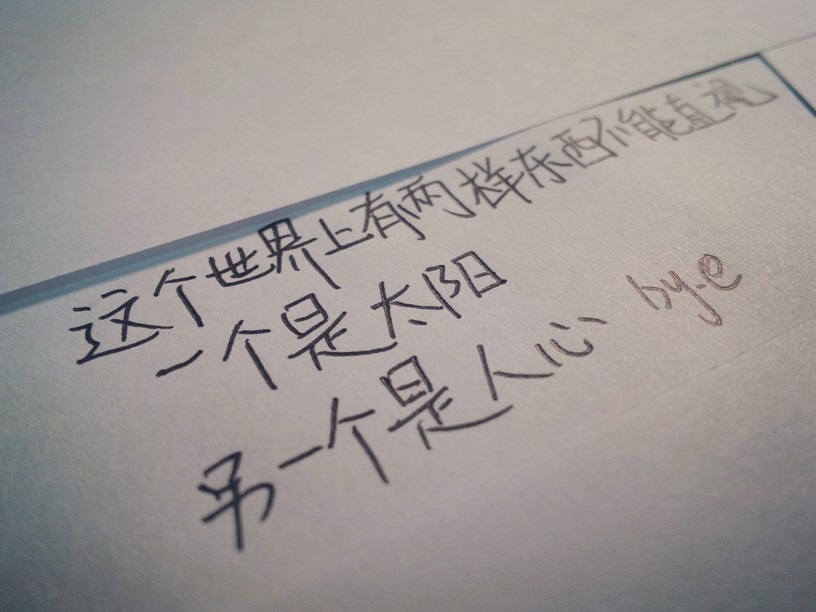 这个世界上有两样东西不能直视
一个是太阳
另一个是人心 by.e